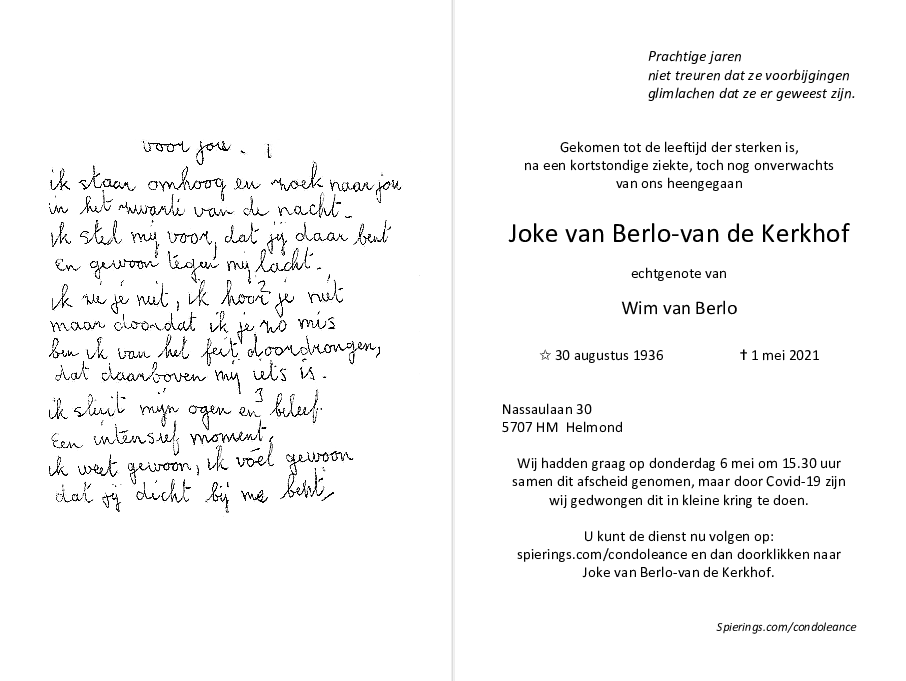 voor jou. 1
ik staar omhoog en zoek naar jou
in het zwarte van de nacht.
ik stel mij voor, dat jij daar bent
en gewoon tegen mij lacht.
2
ik zie je niet, ik hoor je niet
maar doordat ik je zo mis
ben ik van het feit doordrongen,
dat daarboven mij iets is.
3
ik sluit mijn ogen en beleef
Een intensief moment,
ik weet gewoon, ik voel gewoon
dat jij dicht bij me bent,
Prachtige jaren
niet treuren dat ze voorbijgingen
glimlachen dat ze er geweest zijn.
Gekomen tot de leeftijd der sterken is,
na een kortstondige ziekte, toch nog onverwachts
van ons heengegaan
Joke van Berlo-van de Kerkhof
echtgenote van
Wim van Berlo
☆ 30 augustus 1936 † 1 mei 2021
Nassaulaan 30
5707 HM Helmond
Wij hadden graag op donderdag 6 mei om 15.30 uur
samen dit afscheid genomen, maar door Covid-19 zijn
wij gedwongen dit in kleine kring te doen.
U kunt de dienst nu volgen op:
spierings.com/condoleance en dan doorklikken naar
Joke van Berlo-van de Kerkhof.
Spierings.com/condoleance